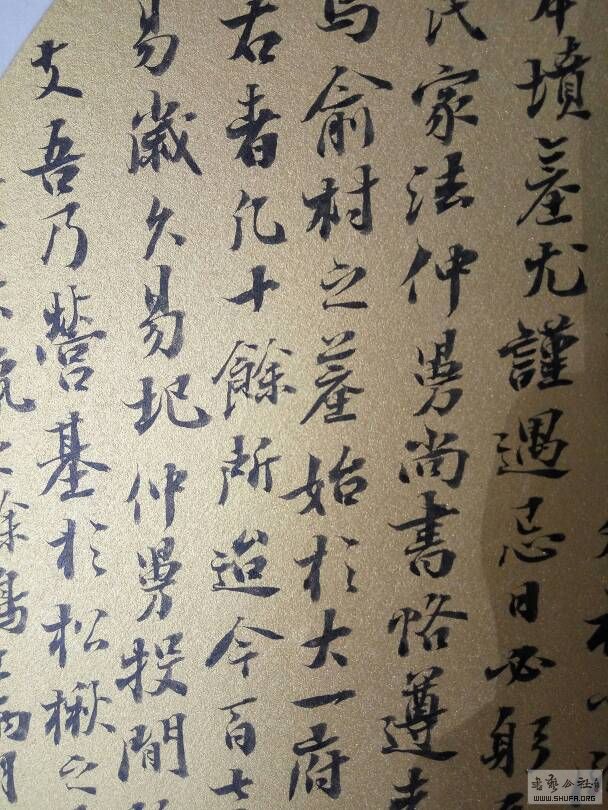 墳墓尤謹遇忌日必躬
氏家法仲舅尚書恪遵
馬俞村之墓始於大一府
右者凡十餘所迨今百
易歲久易圮仲舅投閒
艾吾乃營基於松楸之
WWW.SHUFA.ORG